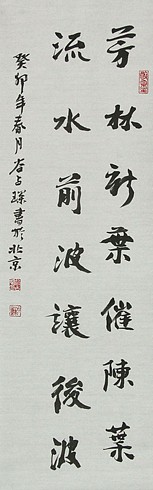 芳林新葉催陳葉
流水前波讓後波
癸卯年春月谷占璞書於北京